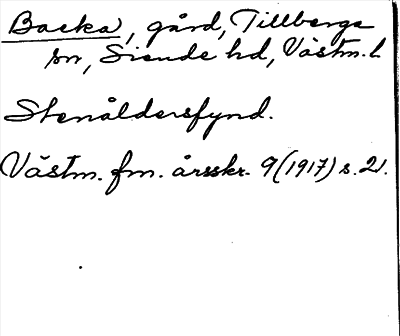 Backa, gård, Tillberga
sn, Siende hd, Västm. l.
Stenåldersfynd.
Västm. fm. årsskr. 9(1917) s. 21.